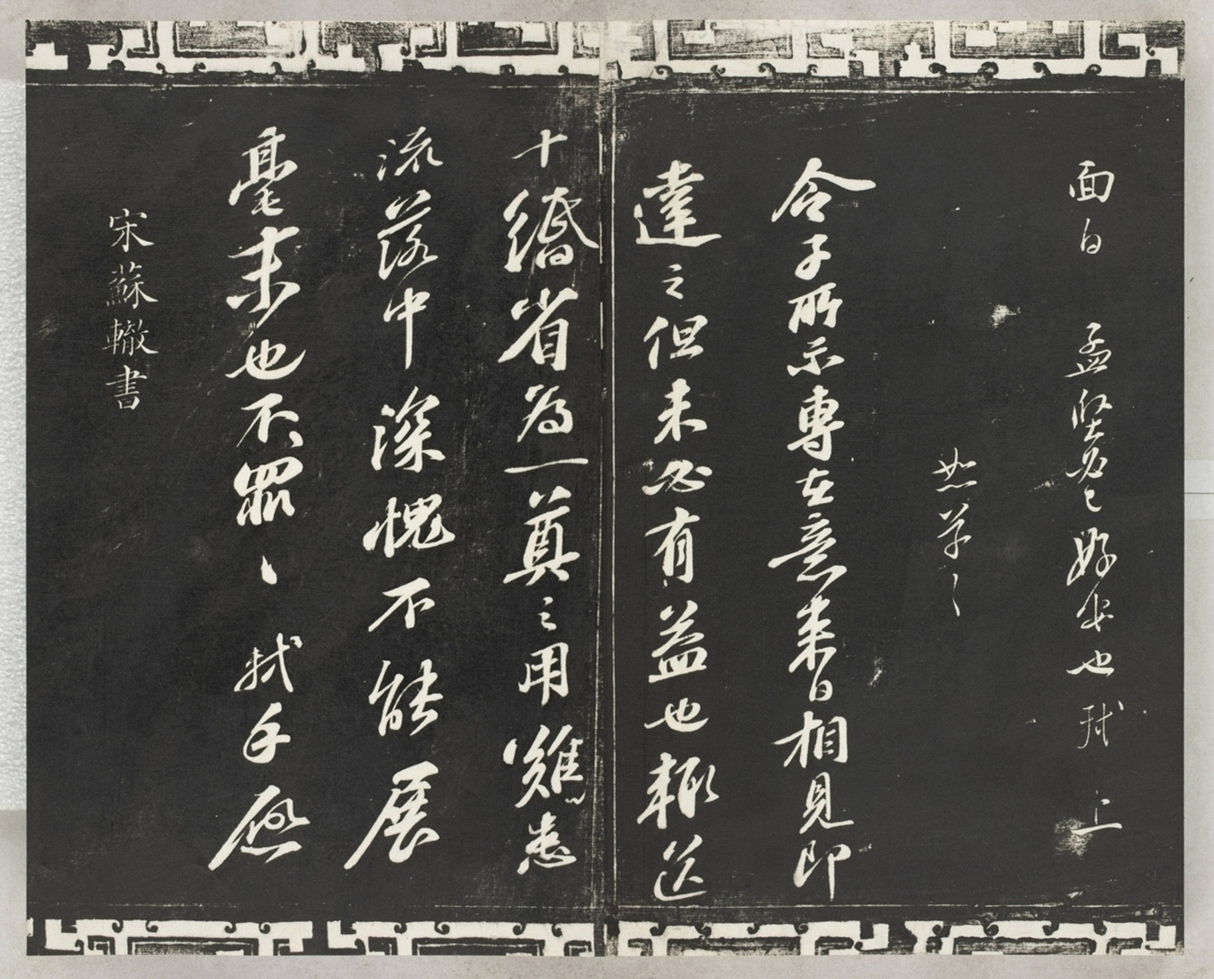 面白 孟堅必已好安也 軾 上
恕草〻
令子所示專在意來日相見即
達之但未必有益也輒送
十緡省為一奠之用難患
流落中深愧不能展
毫末也不罪〻 軾手啟
宋蘇轍書